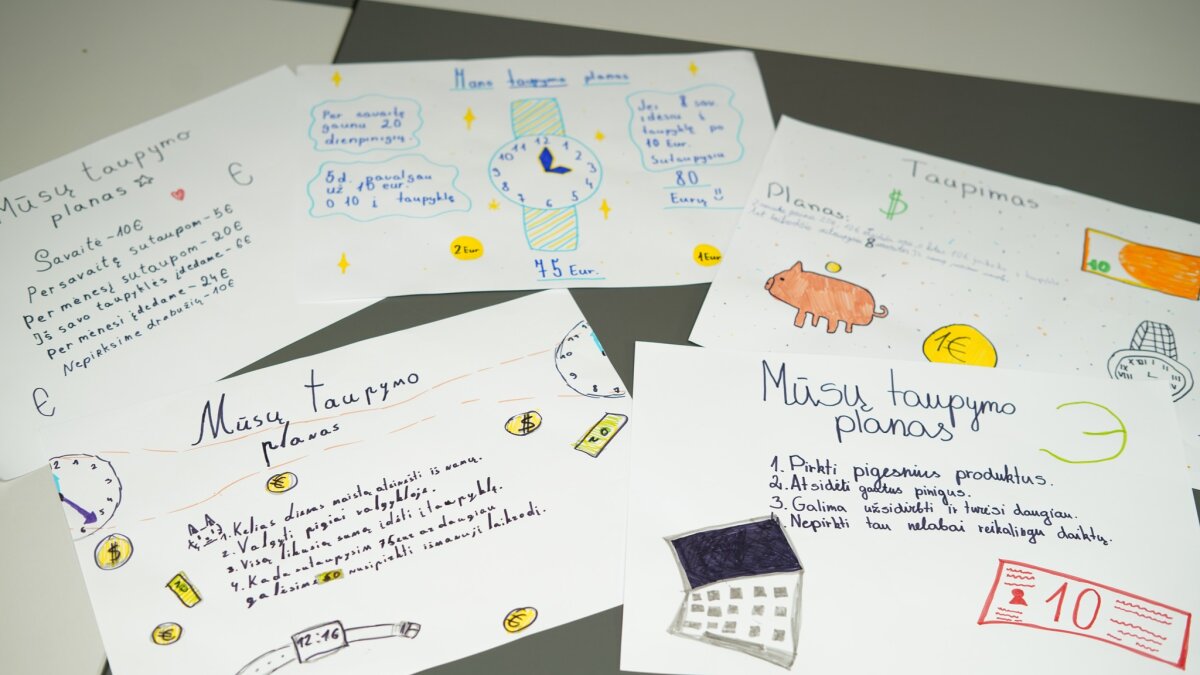 Mūsų taupymo
planas
Savaitė - 10€
Per savaitę sutaupom - 5€
Per mėnesį sutaupom - 20€
Iš savo taupyklės įdedame - 6€
Per mėnesi įdedame - 24€
Nepirksime drabužių - 10€
€
€
Mano taupymo planas
Per savaitę
gaunu 20
dienpinigių
5 d. pavalgau
už 10 eur.
o 10 i taupyklę
12
1
2
3
4
5
6
7
8
9
10
11
Jei 8 sav.
idėsiu i
taupyklę po
10 Eur.
Sutaupysiu
80
Eurų
2 Eur
75 Eur.
1 Eur
Taupimas
Planas:
$
10
1€
Mūsų taupymo
planas
1. Kelias dienas maistą atsinešti iš namų.
2. Valgyti pigiai valgykloje.
3. Visą likusią sumą idėti i taupyklę.
4. Kada sutaupysim 75 eur ar daugiau
galėsime nusipirkti išmanųjį laikrodi.
$
€
$
10
€
€
12:16
Mūsų taupymo
planas
1. Pirkti pigesnius produktus.
2. Atsidėti gautus pinigus.
3. Galima užsidirbti ir turėsi daugiau.
Nepirkti tau nelabai reikalingų daiktų.
10